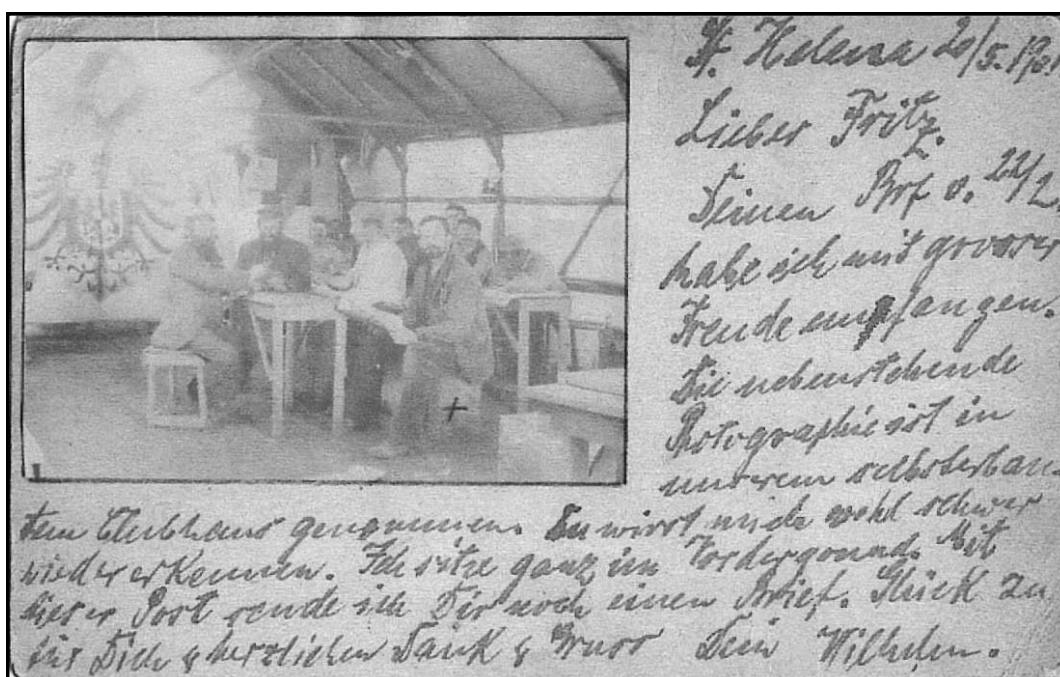 St. Helena 20/5. 1901
Lieber Fritz.
Deinen Brf v. 22/2.
habe ich mit grosser
Freude empfangen.
Die nebenstehende
Photographie ist in
unserem selbsterbau
tem Clubhaus genommen. Du wirst mich wohl schwer
wiedererkennen. Ich sitze ganz im Vordergrund. Mit
dieser Post sende ich Dir noch einen Brief. Glück zu
für Dich & herzlichen Dank & Gruss Dein Wilhelm.